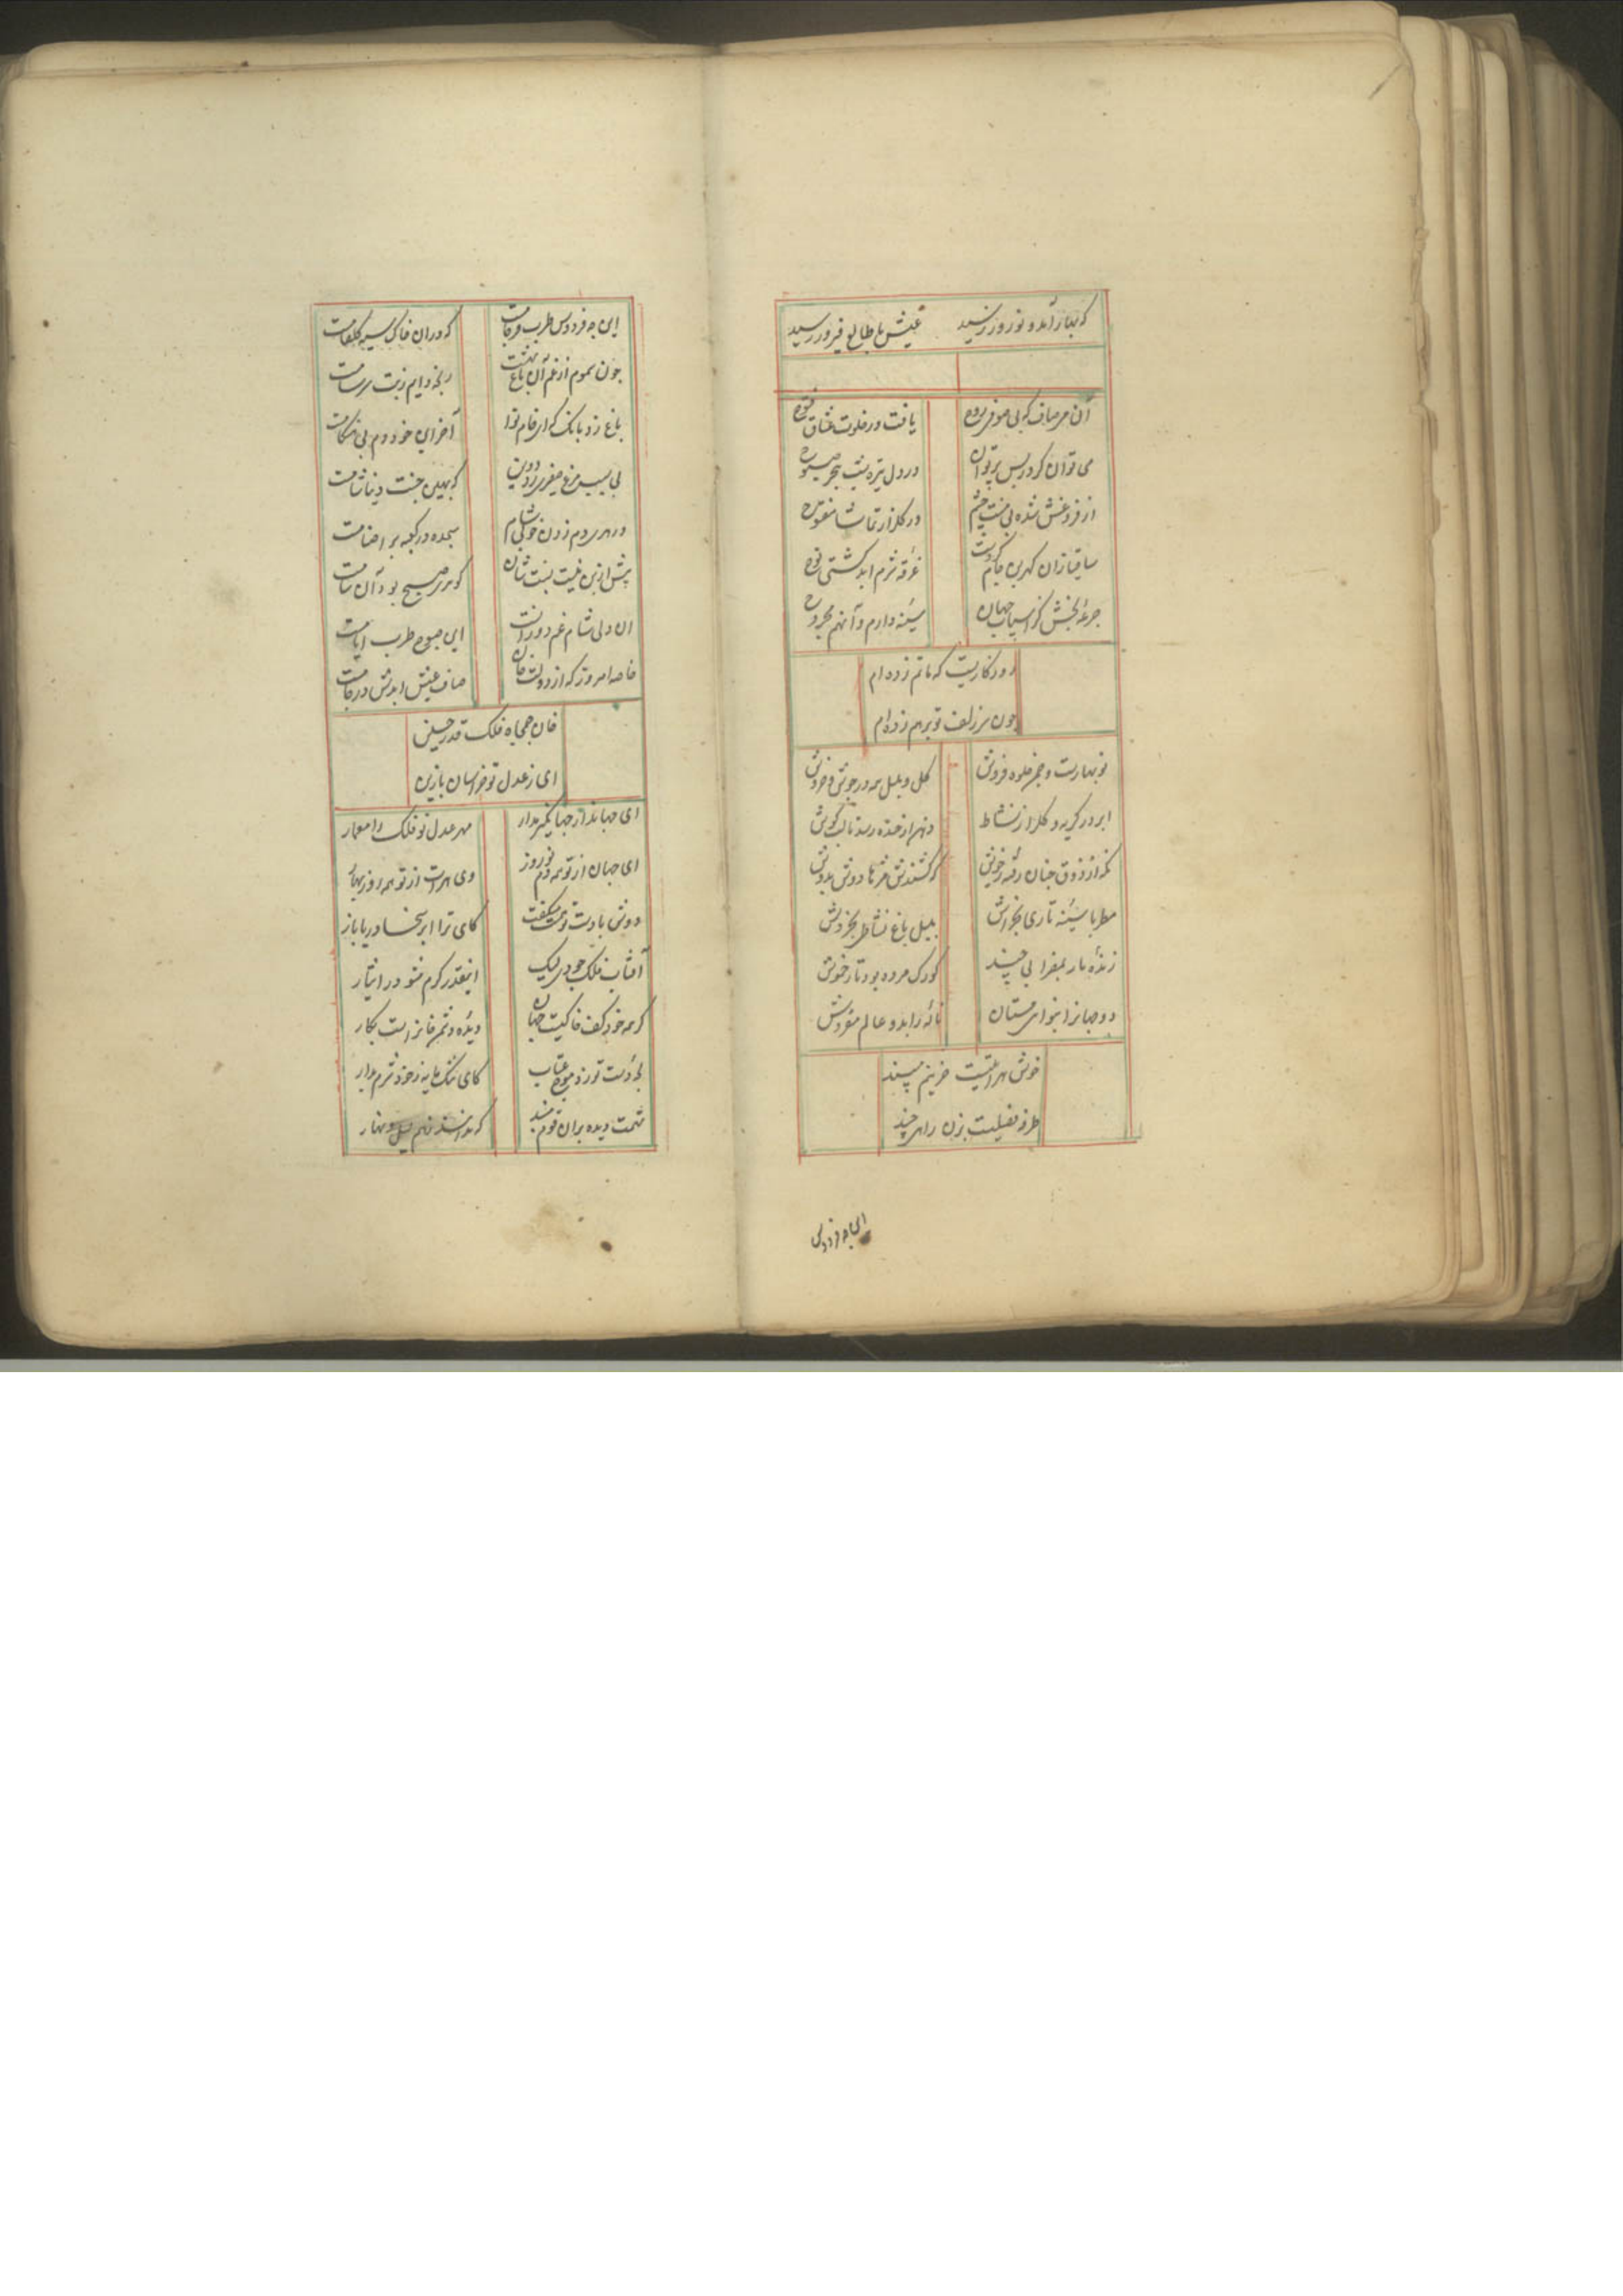 که بهار آمد و نوروز رسید عیش با طالع فیروز رسید
آن می صاف که بی صوفی روح یافت در خلوت عشاق فتوح
می توان کرد پس پرتو آن در دل تیره
از فروغش شده بی منت چشم در گلزار تماشا مفتوح
ساقیا زان کهرین جام که هست غرقه شرم ابد کشتی نوح
جرعه بخش کز اسباب جهان سینه دارم و آنهم مجروح
روزگاریست که ماتم زده ام
چون سر زلف تو برهم زده ام
نوبهارست و چمن جلوه فروش گل و بلبل همه در جوش و خروش
ابر در گریه و گلزار نشاط دهن از خنده رسد تا لب گوش
نکه از ذوق چنان رفته ز خویش که کشندش مژها دوش بدوش
مطربا سینه تاری بخراش بلبل باغ نشاطی بخروش
زنده دار بمضرابی چند کودک مرده بود تار خموش
دو جهانرا بنوای مستان ناله زاید و عالم مفروش
خوش هراتیست حزینم مپسند
راهی چند
این چه فردوس طرب فرجامست که دران خاک سیه گلفامست
چون سموم از غم آن باغ بهشت رنجه دایم ز تب سرسامست
باغ زد بانک که ای خام نوا آخر این خود دم بی هنگامست
که بهین جنت دنیا شامست
در هری دم زدن از خوبی شام سجده در کعبه بر اصنامست
پیش ازین نیست نسبت شان کو هری صبح بود آن شامست
آن ولی شام غم دورانست این صبوح طرب ایامست
خاصه امروز که از دولت خان صاف عیش ابدش در جامست
خان جمجاه فلک قدر حسین
ای ز عدل تو خراسان بازین
ای جهاندار جهانگیر مدار مهر عدل تو فلک را معمار
ای جهان از تو همه دم نوروز وی هرات از تو همه روز بهار
دوش با دست تو همت میگفت کای ترا ابر سخا دریا بار
آفتاب فلک جودی لیک اینقدر گرم مشو در ایثار
گر همه خود کف خاکیست جهان دیده دشمن خانراست بکار
لجه دست تو زد موج عتاب کای تنک مایه ز خود شرم بدار
همت دیده بران قوم مبند که ندانند نهم لیل و نهار
این چه فردوس